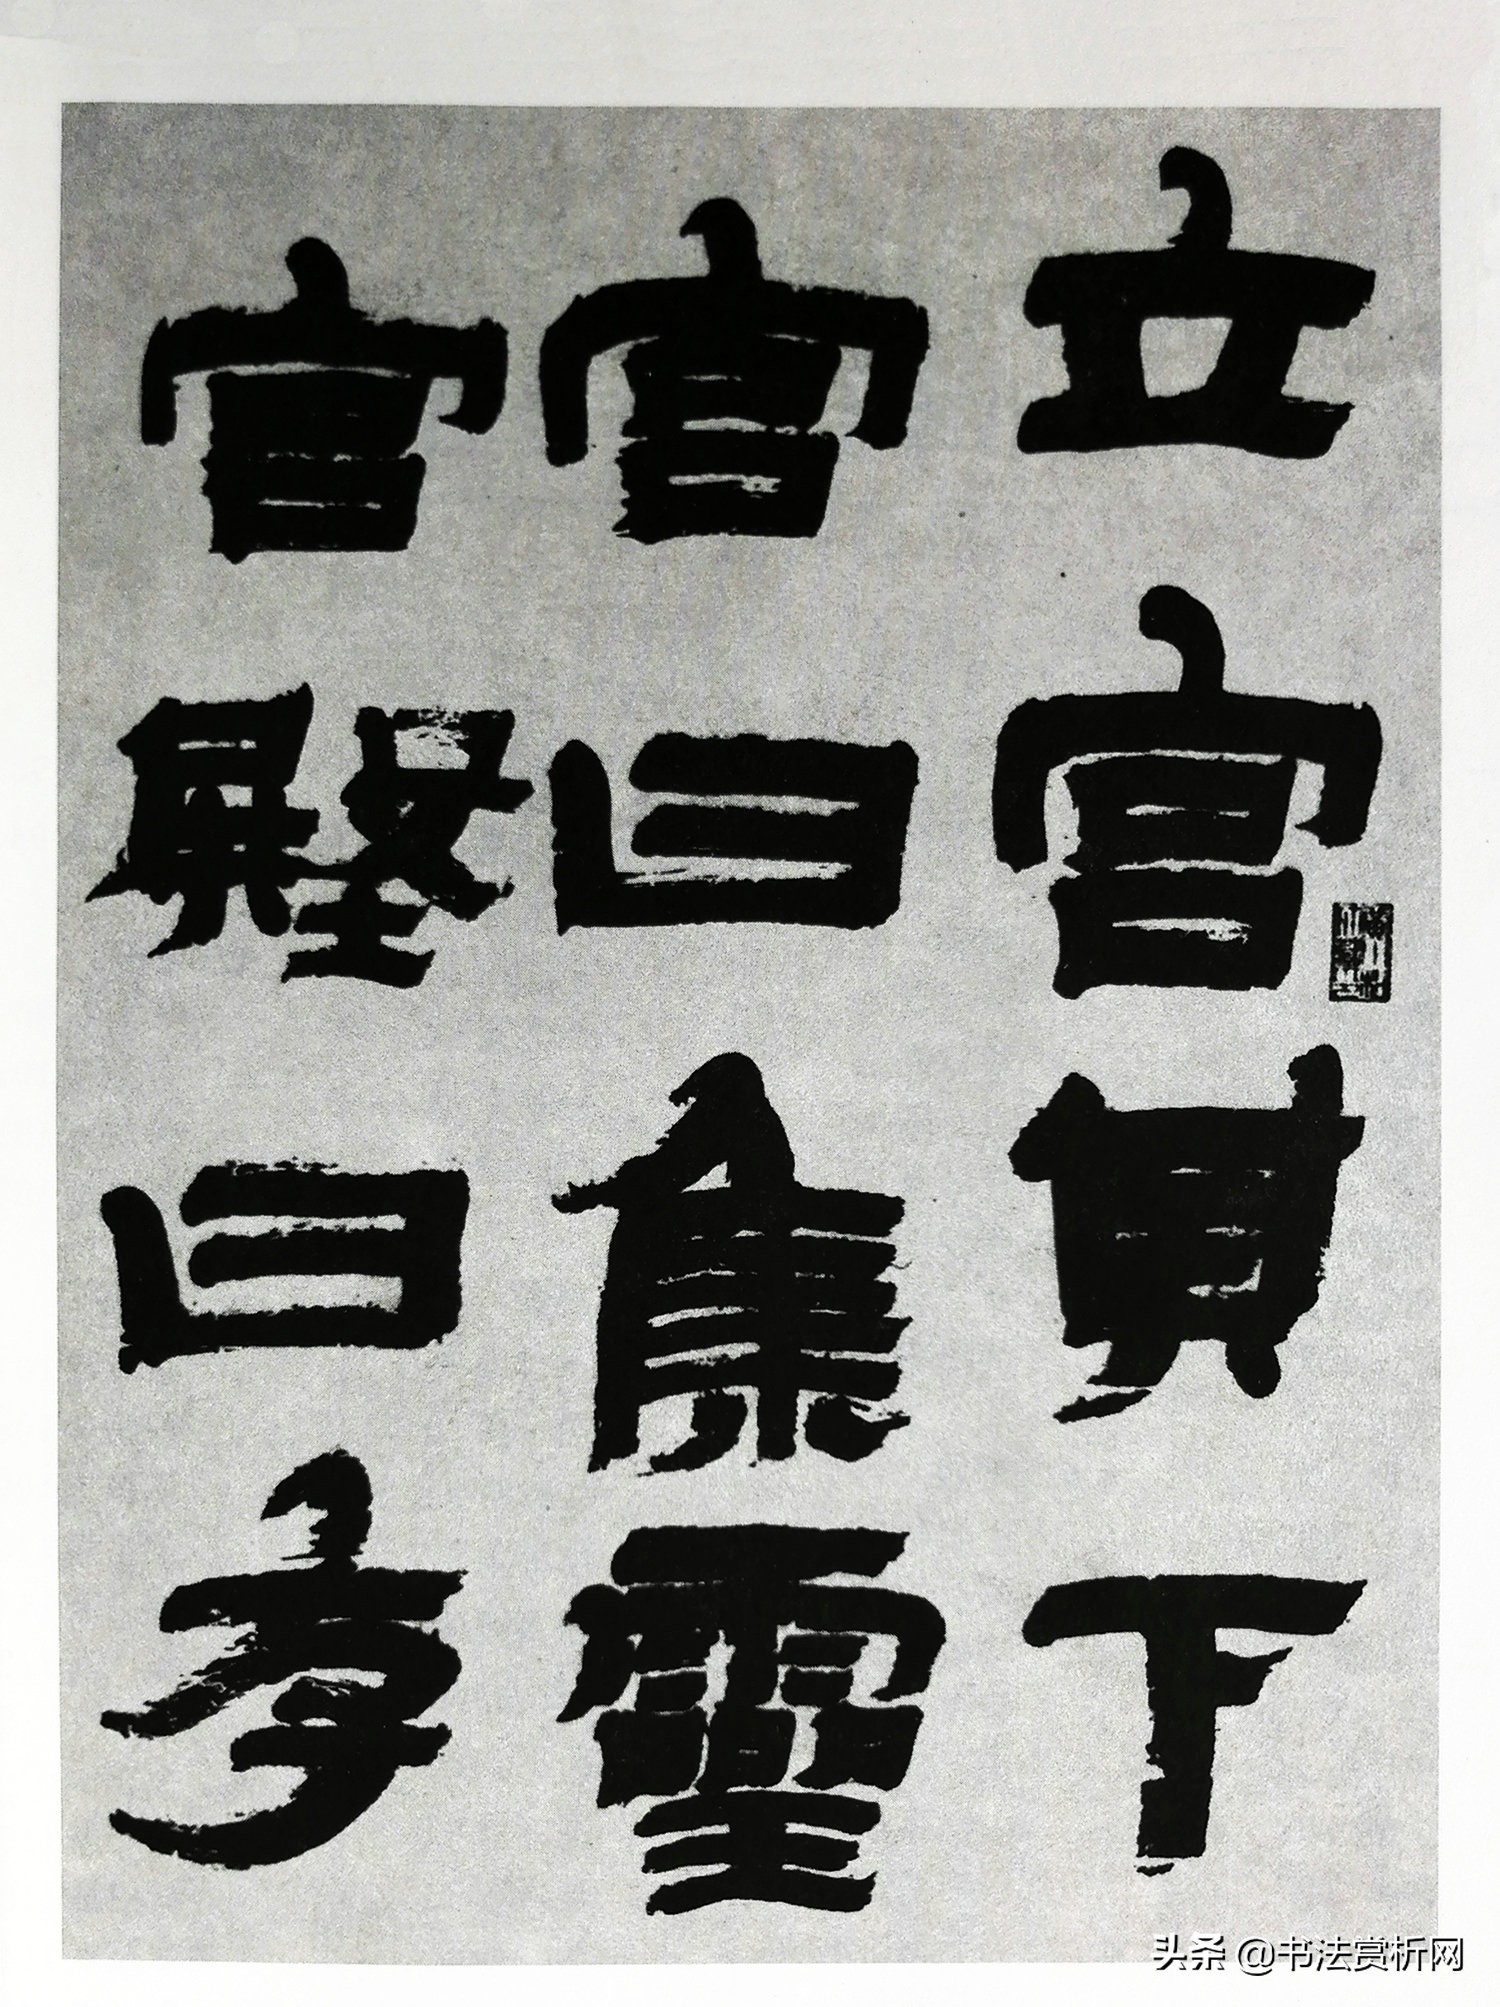 立宮其下
宮曰集靈
宮壂曰存
头条 @书法赏析网